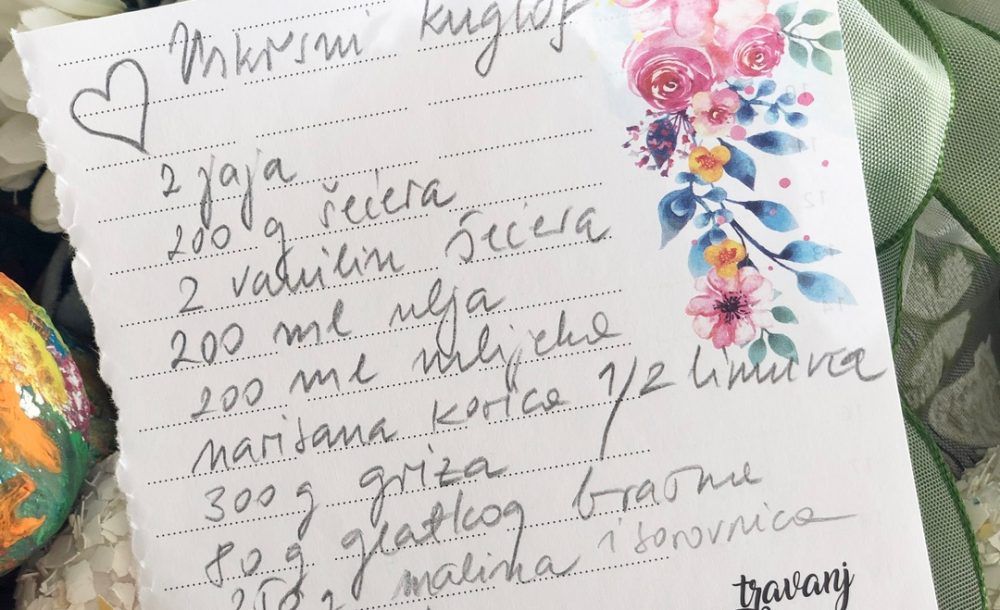 Uskrsni kuglof
2 jaja
200 g šećera
2 vanilin šećera
200 ml ulja
200 ml mlijeka
naribana korica 1/2 limuna
300 g griza
80 g glatkog brašna
250 g malina i borovnica
travanj